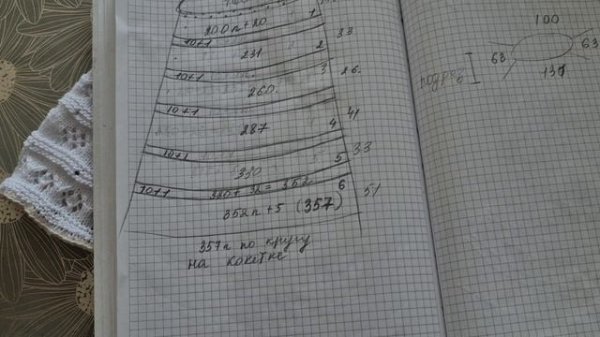 200п+20 1
10+1 33
231 2
10+1 26
260 3
10+1 41
287 4
10+1 33
330 5
10+1 320+32=352 51
352п+5 (357) 6
357п по кругу
на кокетке
100
63 63
131